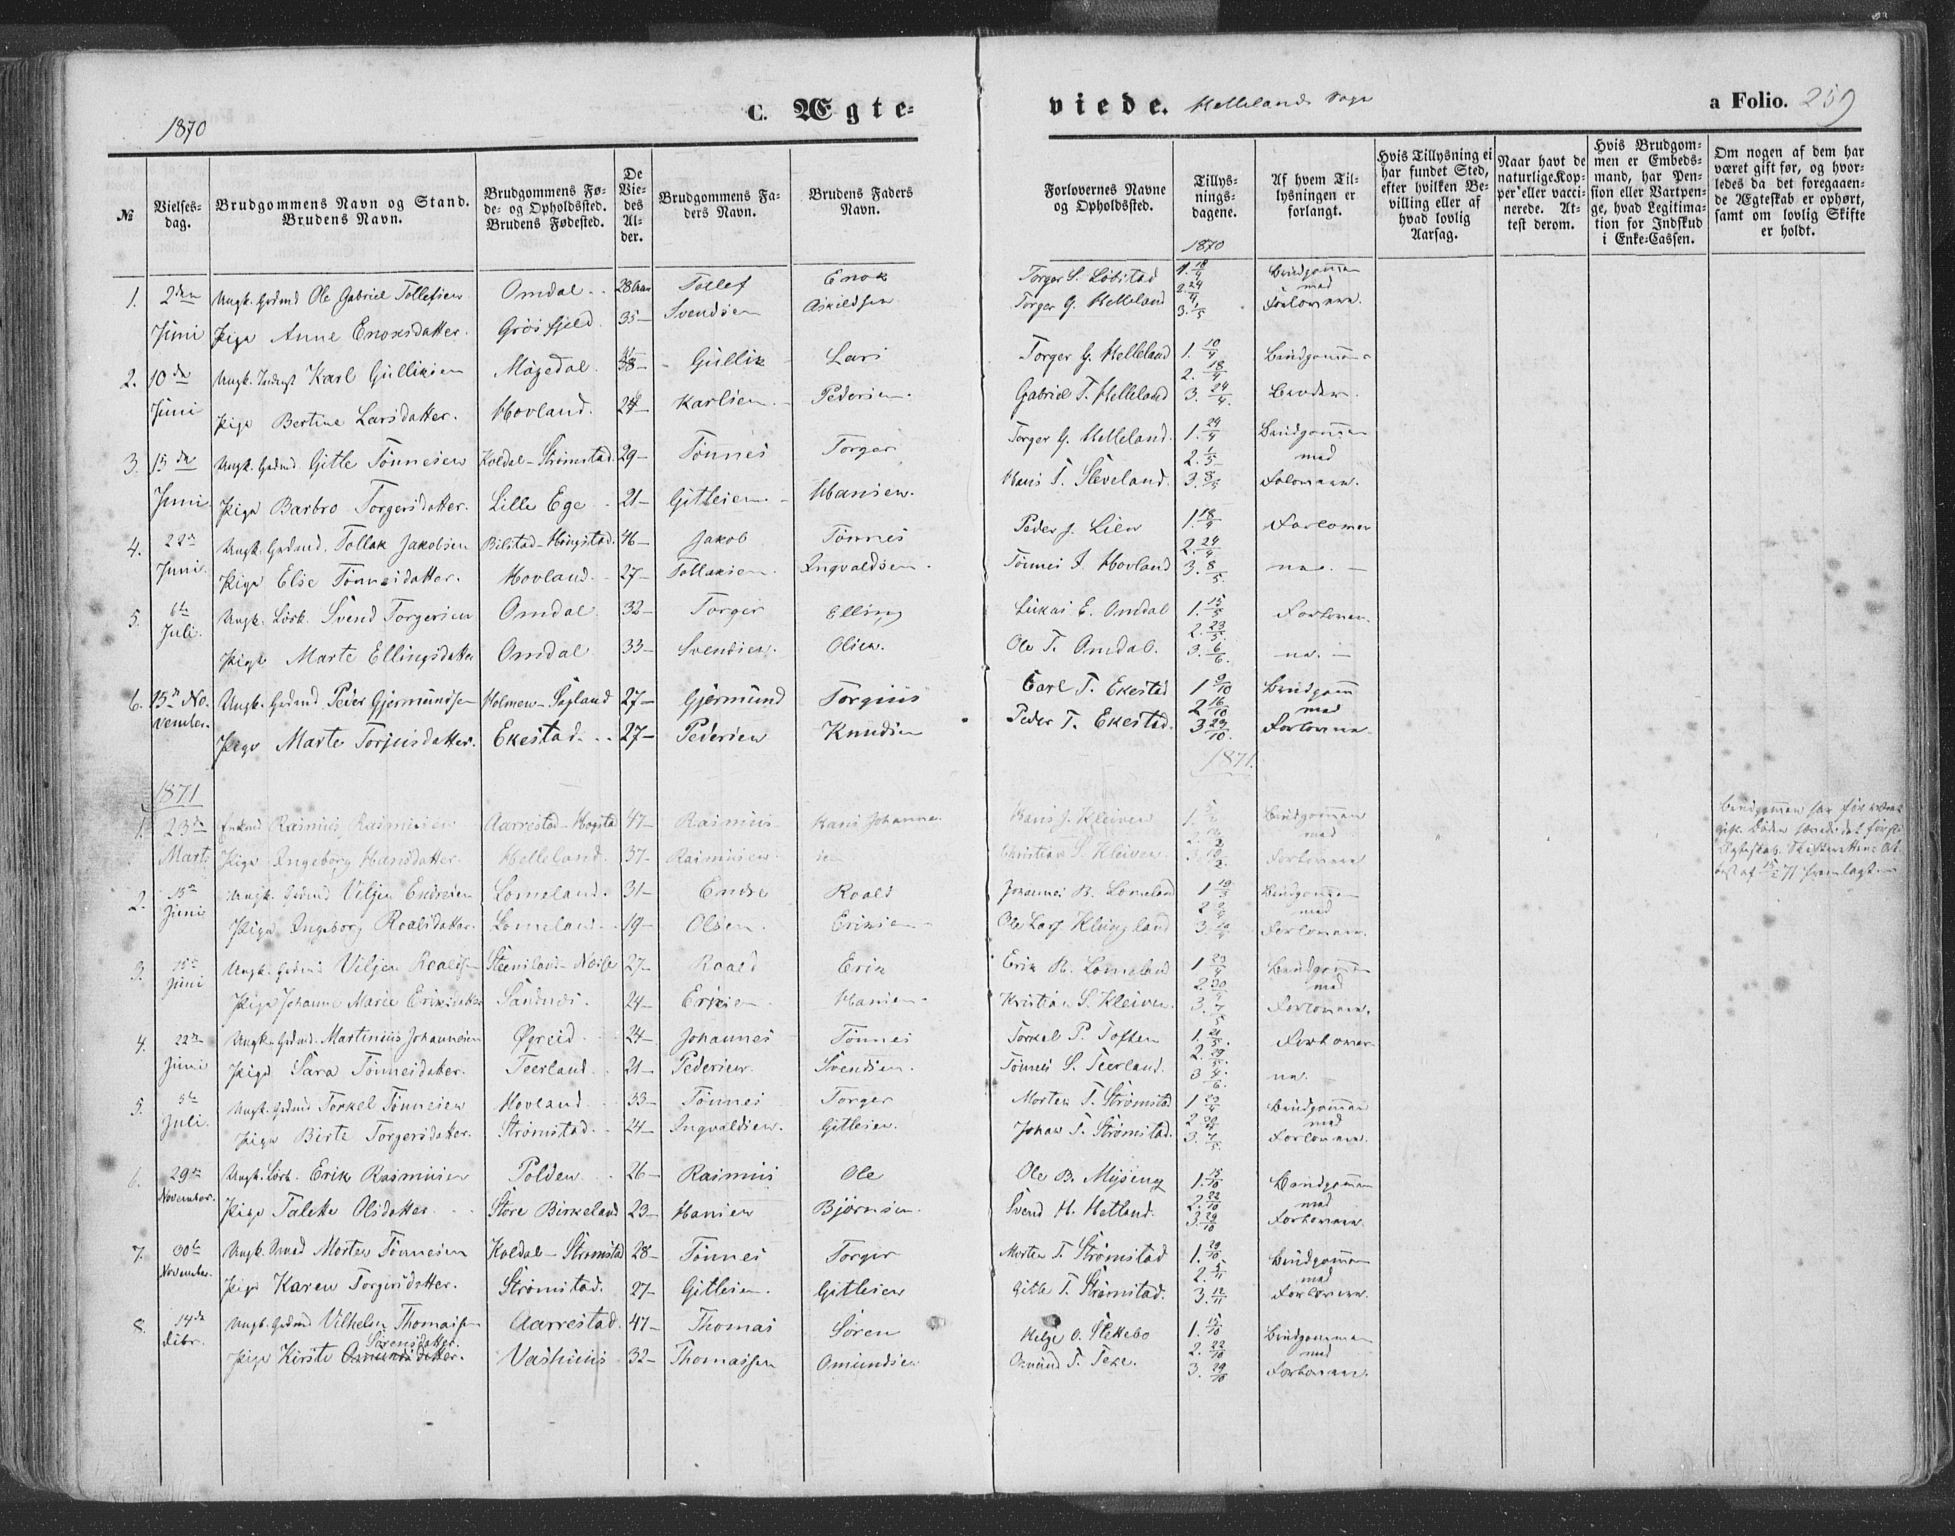 1870
C. Ægte-
viede. Hellelands Sogn
a Folio. 259
№
Vielses-
dag.
Brudgommens Navn og Stand.
Brudens Navn.
Brudgommens Fø-
de- og Opholdssted.
Brudens Fødested.
De
Vie-
des
Al-
der.
Brudgommens Fa-
ders Navn.
Brudens Faders
Navn.
Forlovernes Navne
og Opholdssted.
Tillys-
nings-
dagene.
Af hvem Til-
lysningen er
forlangt.
Hvis Tillysning ei
har fundet Sted,
efter hvilken Be-
villing eller af
hvad lovlig
Aarsag.
Naar havt de
naturlige Kop-
per eller vacci-
nerede. At-
test derom.
Hvis Brudgom-
men er Embeds-
mand, har Pen-
sion eller Vartpen-
ge, hvad Legitima-
tion for Indskud
i Enke-Cassen.
Om nogen af dem har
været gift før, og hvor-
ledes da det foregaaen-
de Ægteskab er ophørt,
samt om lovlig Skifte
er holdt.
1870
1. 2den Ungk. Gadmd Ole Gabriel Tollefsen Omdal 28 Aar Tollef Enok Torger S. Løbstad 1. 18/4 Brudgommen
Juni Pige Anne Enoksdatter. Grøsfjeld. 35 Svendsen Askildsen Torger G. Helleland 2. 24/4 3. 1/5 med Forloverne.
2. 10de Ungk. Karl Gulliksen Møgedal. 38 Gullik Lars Torger G. Helleland 1. 10/4 Brudgommen
Juni Pige Bertine Larsdatter. Hovland. 24 Karlsen Pedersen. Gabriel T. Helleland 2. 18/4 3. 24/4 Bruden.
3. 15de Ungk. Gadmd Gitle Tønnesen Koldal-Strømstad 29 Tønnes Torger Torger G. Helleland. 1. 24/4 Brudgommen
Juni Pige Barbro Torgersdatter. Lille Ege 21 Gitlesen. Hansen. Hans T. Sleveland. 2. 1/5 3. 8/5 med Foloverne.
4. 22de Ungk. Gadmd. Tollak Jakobsen Bilstad-Hingstad. 46 Jakob Tønnes Peder J. Lien 1. 18/4 Forlover
Juni. Pige Else Tønnesdatter. Hovland. 27 Tollaksen. Ingvaldsen. Tønnes I. Hovland 2. 24/4 3. 8/5 ne.
5. 6te Ungk. Løsk. Svend Torgersen Omdal 32 Torger Elling Lukas E. Omdal 1. 15/5 Forlover
Juli. Pige Marte Ellingsdatter Omdal 33 Svendsen. Olsen. Ole T. Omdal. 2. 23/5 3. 6/6 ne.
6. 15de No- Ungk. Gadmd Peder Gjermundsen Holmen-Søgland 27 Gjermund Torgius Carl T. Ekestad 1 9/10 Brudgom
vember Pige Marte Torjusdatter. Ekestad. 27 Pedersen Knudsen Peder T. Ekestad. 2 16/10 3 23/10 med Forloverne.
1871
1871.
1. 23de Enkmd Rasmus Rasmussen Aarrestad-Hogstad 47 Rasmus Hans Johanne- Hans J. Kleiven 1. Brudgommen
Marts Pige Ingeborg Hansdatter. Helleland. 37 Rasmussen. sen Christian S. Kleiven. 2. 3. med Forloverne.
Brudgommen har før været
gift. Døden hævede det første
Ægteskab. Skifterettens At-
test af 15/2 71 fremlagt
2. 15de Ungk. Gadmd Viljen Endresen Lomeland. 31 Endre Roald Johannes B. Lomeland 1 Brudgommen
Juni Pige Ingeborg Roaldsdatter. Lomeland. 19 Olsen. Eriksen Ole Larf Klungland 2 3 med Forloverne.
3. 15de Ungk. Gadmd Viljen Roaldsen Steensland- 27 Roald Erik Erik R. Lomeland 1 23/4 Brudgommen
Juni Pige Johanne Marie Eriksdatter Sandnes. 24 Eriksen Hansen. Kristian S. Kleiven. 2 30/4 3. 7/5 med Forloverne.
4. 22de Ungk. Gadmd. Martinius Johannesen Øgreid 24 Johannes Tønnes Torkel P. Toften 1. 21/5 Forlover
Juni Pige Sara Tønnesdatter. Teerland. 21 Pedersen. Svendsen. Tønnes S. Teerland. 2. 29/5 3 4/6 ne.
5. 5te Ungk. Gadmd Torkel Tønnesen Hovland. 33 Tønnes Torger Morten T. Strømstad 1 23/4 Brudgommen
Juli. Pige Birte Torgersdatter. Strømstad. 24 Ingvaldsen. Gitlesen. Johan T. Strømstad. 2 30/4 3. 7/5 med Forloverne.
6. 29de Ungk. Lørb. Erik Rasmussen Polden 26 Rasmus Ole Ole B. Mysing 1. 15/10 Brudgommen
November. Pige Talette Olsdatter. Store Birkeland 23 Hansen Bjørnsen. Svend H. Hetland. 2. 22/10 3. 29/10 med Forloverne.
7. 30te Ungk. Morten Tønnesen Koldal-Strømstad 28 Tønnes Torger Morten T. Strømstad 1. 29/10 Brudgommen
November. Pige Karen Torgersdatter. Strømstad. 27 Gitlesen. Gitlesen Gitle T. Strømstad. 2. 5/11 3. 12/11 med Forloverne.
8. 14de Ungk. Gadmd Vilhelm Thomassen Aarrestad. 47 Thomas Søren Helge O. Slettebo 1. 15/10 Brudgommen
Debr. Pige Kirste Omundsdatter. Sørensdatter. Vashuus 32 Thomassen Omundsen Omund T. Teke. 2. 22/10 3. 29/10 med Forloverne.